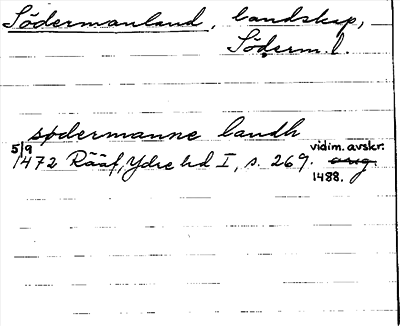 Södermanland, landskap,
Söderm. l.
södermanne landh
5/9 1472 Rääf, Ydre hd I, s. 269. vidim. avskr. orig.
1488.